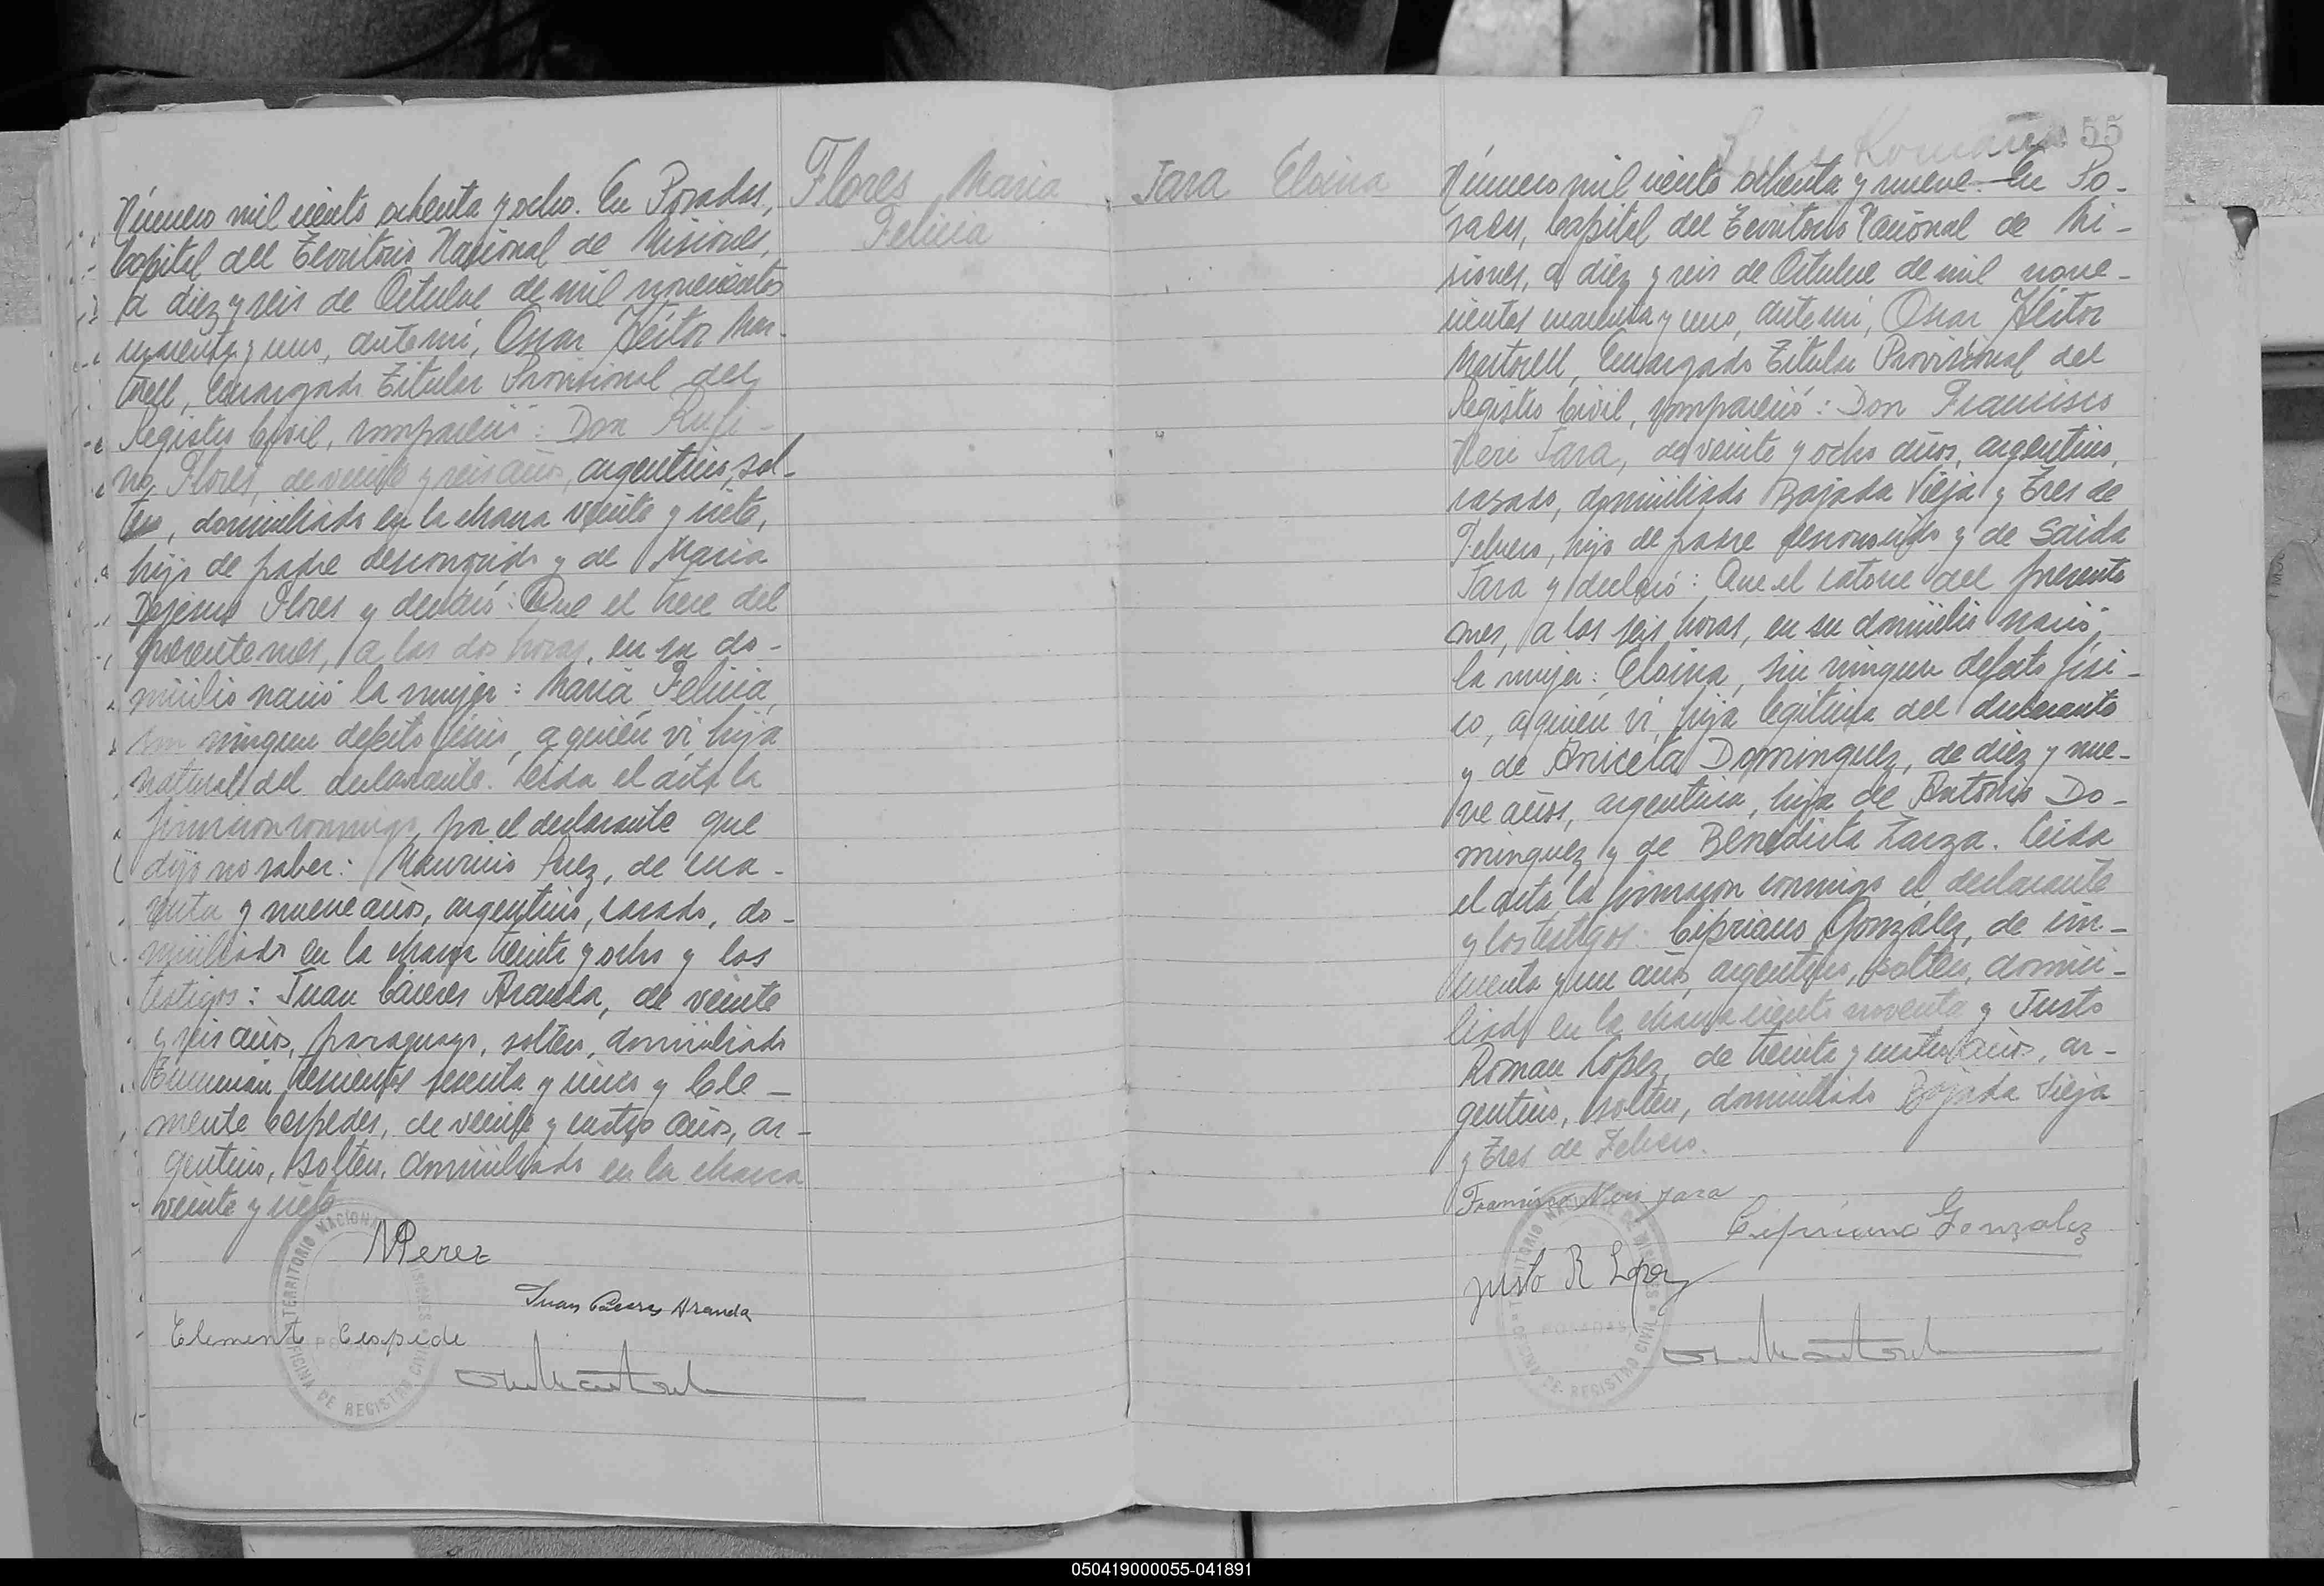 Flores Maria
Felicia
Número mil ciento ochenta y ocho. En Posadas,
Capital del Territorio Nacional de Misiones,
a diez y seis de Octubre de mil novecientos
cuarenta y uno, ante mi, Oscar Héitor Mar-
torell, Encargado Titular Provisional del
Registro Civil, compareció: Don Rufi-
no Flores, de veinte y seis años, argentino, sol-
tero, domiciliado en la chacra veinte y siete,
hijo de padre desconocido y de Maria
Dejesus Flores y declaró: Que el trece del
presente mes, a las dos horas, en su do-
micilio nació la mujer: Maria Felicia,
sin ningun defecto fisico, a quién vi, hija
natural del declarante. Leida el acta la
firmaron conmigo, por el declarante que
dijo no saber: Mauricio Perez, de cua-
renta y nueve años, argentino, casado, do-
miciliado en la chacra treinta y ocho y los
testigos: Juan Cáceres Aranda, de veinte
y seis años, paraguayo, soltero, domiciliado
Tucumán seiscientos sesenta y cinco y Cle-
mente Cespedes, de veinte y cuatro años, ar-
gentino, soltero, domiciliado en la chacra
veinte y siete
MPerez
Juan Cáceres Aranda
Clemente Cespede
TERRITORIO NACIONAL DE MISIONES
OFICINA DE REGISTRO CIVIL
55
Jara Eloina
Número mil ciento ochenta y nueve. En Po-
sadas, Capital del Territorio Nacional de Mi-
siones, a diez y seis de Octubre de mil nove-
cientos cuarenta y uno, ante mi, Oscar Héitor
Martorell, Encargado Titular Provisional del
Registro Civil, compareció: Don Francisco
Neri Jara, de veinte y ocho años, argentino,
casado, domiciliado Bajada Vieja y Tres de
Febrero, hijo de padre desconocido y de Saida
Jara y declaró: Que el catorce del presente
mes, a las seis horas, en su domicilio nació
la mujer: Eloina, sin ningun defecto físi-
co, a quién vi, hija legitima del declarante
y de Aniceta Dominguez, de diez y nue-
ve años, argentina, hija de Antonio Do-
minguez y de Benedicta Zarza. Leida
el acta la firmaron conmigo el declarante
y los testigos: Cipriano González, de cin-
cuenta y un años, argentino, soltero, domici-
liado en la chacra ciento noventa y Justo
Roman López, de treinta y cuatro años, ar-
gentino, soltero, domiciliado Bajada Vieja
y Tres de Febrero.
Francisco Neri Jara
Cipriano Gonzalez
Justo R Lopez
TERRITORIO NACIONAL DE MISIONES
POSADAS
OFICINA DE REGISTRO CIVIL
050419000055-041891